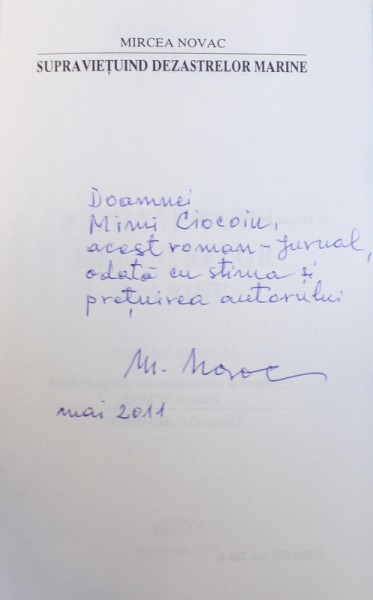 MIRCEA NOVAC
SUPRAVIEȚUIND DEZASTRELOR MARINE
Doamnei
Mimi Ciocoiu,
acest roman-jurnal,
odată cu stima și
prețuirea autorului
M. Novac
mai 2011